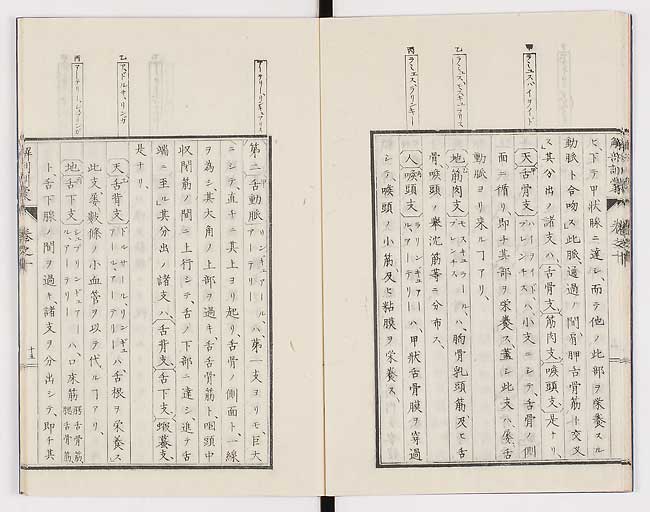 甲
ラミュス、ハイヲイド
乙
ラミュス、モスキュラリス
丙
ラミュス、ラリンキー
ヒ、下テ甲状腺ニ達シ、而テ他ノ此部ヲ栄養スル
動脈ト合吻ス」此脈、通過ノ間肩胛舌骨筋ト交叉
ス」其分出ノ諸支ハ、舌骨支、筋肉支、喉頭支、是ナリ、
天舌骨支 ハイヲイド、ブレンチス ハ、小支ニシテ、舌骨ノ側
面ニ循リ、即チ其部ヲ栄養ス」蓋シ此支ハ、偶舌
動脈ヨリ来ルヿアリ、
地筋肉支 モスキュラール、ブレンチス ハ、胸骨乳頭筋及ヒ舌
骨、喉頭ノ牽沈筋等ニ分布ス、
人喉頭支 ラリンギアール、アーテリー ハ、甲状舌骨膜ヲ穿過
シテ喉頭ノ小筋、及ヒ粘膜ヲ栄養ス、
アーテリー、リンギュアリス
乙
アドルサ、リング
丙
第二舌動脈 リンギュアール、アーテリー ハ、第一支ヨリモ、巨大
ニシテ直チニ其上ヨリ起リ、舌骨ノ側面ト一線
ヲ為シ、其大角ノ上部ヲ過キ、舌舌骨筋ト、咽頭中
収閉筋ノ間ニ上行シテ、舌ノ下部ニ達シ、進テ舌
端ニ至ル」其分出ノ諸支ハ、舌背支、舌下支、蝦蟇支、
是ナリ、
天舌背支 ドルサール、リンギュアール、アーテリー ハ舌根ヲ栄養ス」
此支、屡数條ノ小血管ヲ以テ代ルヿアリ、
地舌下支 シュブリンギュアール、アーテリー ハ、口床筋 頤舌骨筋、腮舌骨筋
ト舌下腺ノ間ヲ過キ、諸支ヲ分出シテ、即チ其
巻之十
十五